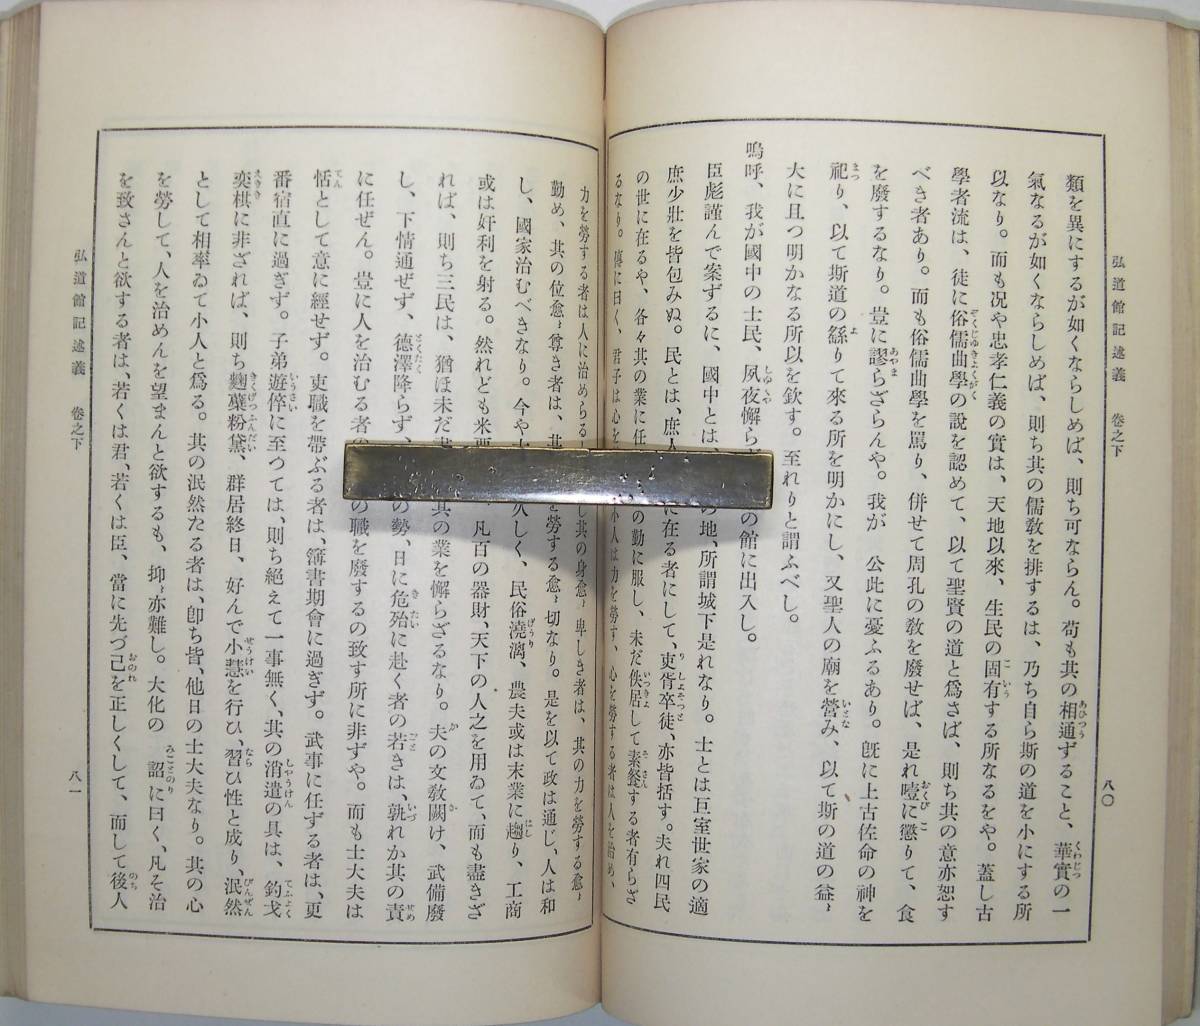 弘道館記述義　卷之下
八〇
類を異にするが如くならしめば、則ち可ならん。苟も其の相通ずること、華實の一
氣なるが如くならしめば、則ち其の儒敎を排するは、乃ち自ら斯の道を小にする所
以なり。而も況や忠孝仁義の實は、天地以來、生民の固有する所なるをや。蓋し古
學者流は、徒に俗儒曲學の說を認めて、以て聖賢の道と爲さば、則ち其の意亦恕す
べき者あり。而も俗儒曲學を罵り、併せて周孔の敎を廢せば、是れ噎に懲りて、食
を廢するなり。豈に謬らざらんや。我が　公此に憂ふるあり。旣に上古佐命の神を
祀り、以て斯道の繇りて來る所を明かにし、又聖人の廟を營み、以て斯の道の益〻
大に且つ明かなる所以を欽す。至れりと謂ふべし。
嗚呼、我が國中の士民、夙夜懈ら の館に出入し。
臣彪謹んで案ずるに、國中とは、 の地、所謂城下是れなり。士とは巨室世家の適
庶少壯を皆包みぬ。民とは、庶人 に在る者にして、吏胥卒徒、亦皆括す。夫れ四民
の世に在るや、各々其の業に任 の勤に服し、未だ佚居して素餐する者有らざ
るなり。傳に曰く、君子は心を 小人は力を勞す、心を勞する者は人を治め、
力を勞する者は人に治めらると し其の身愈〻卑しき者は、其の力を勞する愈〻
勤め、其の位愈〻尊き者は、其 を勞する愈〻切なり。是を以て政は通じ、人は和
し、國家治むべきなり。今や 久しく、民俗澆漓、農夫或は末業に趨り、工商
或は奸利を射る。然れども米粟 凡百の器財、天下の人之を用ゐて、而も盡きざ
れば、則ち三民は、猶ほ未だ 其の業を懈らざるなり。夫の文敎闕け、武備廢
し、下情通ぜず、德澤降らず、 の勢、日に危殆に赴く者の若きは、孰れか其の責
に任ぜん。豈に人を治むる者 の職を廢するの致す所に非ずや。而も士大夫は
恬として意に經せず。吏職を帶ぶる者は、簿書期會に過ぎず。武事に任ずる者は、更
番宿直に過ぎず。子弟遊倅に至つては、則ち絕えて一事無く、其の消遣の具は、釣戈
奕棋に非ざれば、則ち麴蘗粉黛、群居終日、好んで小慧を行ひ、習ひ性と成り、泯然
として相率ゐて小人と爲る。其の泯然たる者は、卽ち皆、他日の士大夫なり。其の心
を勞して、人を治めんを望まんと欲するも、抑〻亦難し。大化の　詔に曰く、凡そ治
を致さんと欲する者は、若くは君、若くは臣、當に先づ己を正しくして、而して後人
弘道館記述義　卷之下
八一